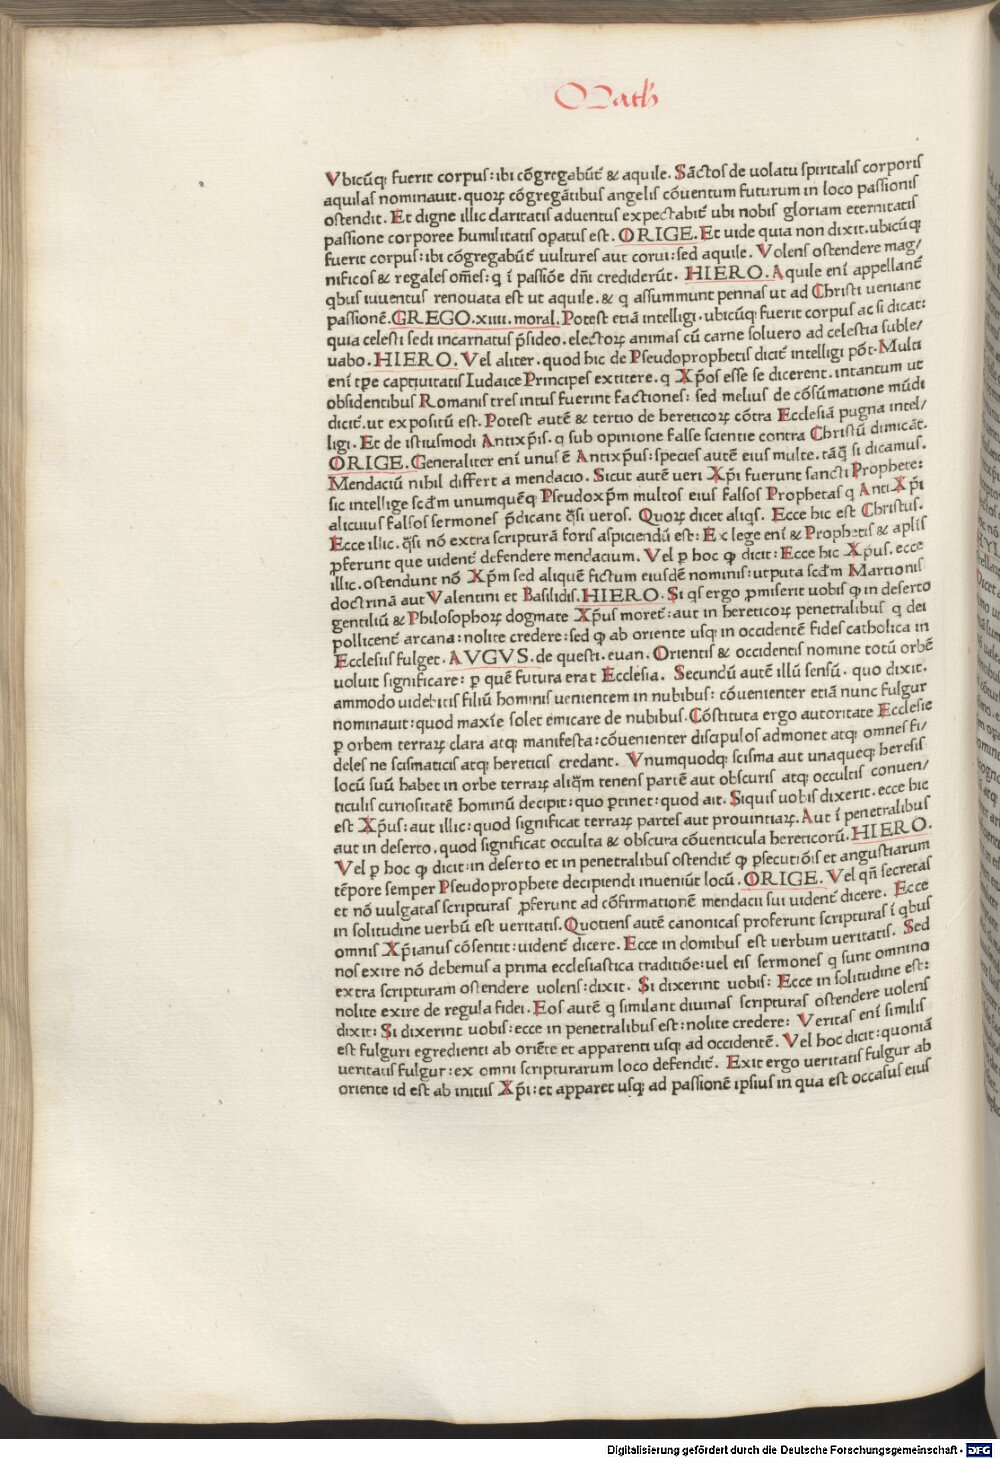 Math
Vbicūq; fuerit corpus: ibi cōgregabūt̄ & aquile. Sāctos de uolatu spiritalis corporis
aquilas nominauit. quoꝝ cōgregātibus angelis cōuentum futurum in loco passionis
ostendit. Et digne illic claritatis aduentus expectabit̄ ubi nobis gloriam eternitatis
passione corporee humilitatis opatus est. ORIGE. Et uide quia non dixit. ubicūq;
fuerit corpus: ibi cōgregabūt̄ uultures aut corui: sed aquile. Volens ostendere mag/
nificos & regales om̄es: q ī passiōe dn̄i crediderūt. HIERO. Aquile eni appellant̄
qbus iuuentus renouata est ut aquile. & q assummunt pennas ut ad Christi ueniant
passionē. GREGO. xiiii. moral. Potest etiā intelligi. ubicūq; fuerit corpus ac si dicat:
quia celesti sedi incarnatus p̄sideo. electoꝝ animas cū carne soluero ad celestia suble/
uabo. HIERO. Vel aliter. quod hic de Pseudoprophetis dicit̄ intelligi pōt. Multi
enī tꝑe captiuitatis Iudaice Principes extitere. q Xp̄os esse se dicerent. intantum ut
obsidentibus Romanis tres intus fuerint factiones: sed melius de cōsūmatione mūdi
dicit̄. ut expositū est. Potest autē & tertio de hereticoꝝ cōtra Ecclesiā pugna intel/
ligi. Et de istiusmodi Antixp̄is. q sub opinione false scientie contra Christū dimicāt.
ORIGE. Generaliter enī unus ē Antixp̄us: species autē eius multe. tāq̄ si dicamus.
Mendaciū nihil differt a mendacio. Sicut autē ueri Xp̄i fuerunt sancti Prophete:
sic intellige scd̄m unumquēq; Pseudoxp̄m multos eius falsos Prophetas q AntiXp̄i
alicuius falsos sermones p̄dicant q̄si ueros. Quoꝝ dicet aliqs. Ecce hic est Christus.
Ecce illic. q̄si nō extra scripturā foris aspiciendū est: Ex lege enī & Prophetis & apl̄is
ꝓferunt que uident̄ defendere mendacium. Vel ꝑ hoc ꝙ dicit: Ecce hic Xp̄us. ecce
illic. ostendunt nō Xp̄m sed aliquē fictum eiusdē nominis: utputa scd̄m Martionis
doctrinā aut Valentini et Basilidis. HIERO. Si qs ergo ꝓmiserit uobis ꝙ in deserto
gentiliū & Philosophoꝝ dogmate Xp̄us moret̄: aut in hereticoꝝ penetralibus q dei
pollicent̄ arcana: nolite credere: sed ꝙ ab oriente usq; in occidentē fides catholica in
Ecclesiis fulget. AVGVS. de questi. euan. Orientis & occidentis nomine totū orbē
uoluit significare: ꝑ quē futura erat Ecclesia. Secundū autē illū sensū. quo dixit.
ammodo uidebitis filiū hominis uenientem in nubibus: cōuenienter etiā nunc fulgur
nominauit: quod maxīe solet emicare de nubibus. Cōstituta ergo autoritate Ecclesie
ꝑ orbem terraꝝ clara atq; manifesta: cōuenienter discipulos admonet atq; omnes fi/
deles ne scismaticis atq; hereticis credant. Vnumquodq; scisma aut unaqueq; heresis
locū suū habet in orbe terraꝝ aliq̄m tenens partē aut obscuris atq; occultis conuen/
ticulis curiositatē hominū decipit: quo ꝑtinet: quod ait. Siquis uobis dixerit. ecce hic
est Xp̄us: aut illic: quod significat terraꝝ partes aut prouintiaꝝ. Aut ī penetralibus
aut in deserto. quod significat occulta & obscura cōuenticula hereticorū. HIERO.
Vel ꝑ hoc ꝙ dicit: in deserto et in penetralibus ostendit ꝙ ꝑsecutiōis et angustiarum
tēpore semper Pseudoprophete decipiendi inueniūt locū. ORIGE. Vel qn̄ secretas
et nō uulgatas scripturas ꝓferunt ad cōfirmationē mendacii sui uident̄ dicere. Ecce
in solitudine uerbū est ueritatis. Quotiens autē canonicas proferunt scripturas ī qbus
omnis Xp̄ianus cōsentit: uident̄ dicere. Ecce in domibus est uerbum ueritatis. Sed
nos exire nō debemus a prima ecclesiastica traditiōe: uel eis sermones q sunt omnino
extra scripturam ostendere uolens: dixit. Si dixerint uobis: Ecce in solitudine est:
nolite exire de regula fidei. Eos autē q similant diuinas scripturas ostendere uolens
dixit: Si dixerint uobis: ecce in penetralibus est: nolite credere: Veritas enī similis
est fulguri egredienti ab oriēte et apparenti usq; ad occidentē. Vel hoc dicit: quoniā
ueritatis fulgur: ex omni scripturarum loco defendit̄. Exit ergo ueritatis fulgur ab
oriente id est ab initiis Xp̄i: et apparet usq; ad passionē ipsius in qua est occasus eius
Digitalisierung gefördert durch die Deutsche Forschungsgemeinschaft - DFG